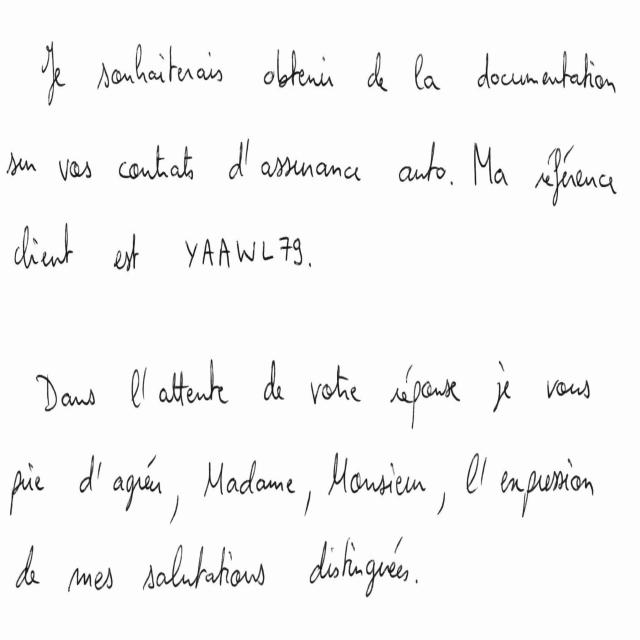 Je souhaiterais obtenir de la documentation
sur vos contrats d'assurance auto. Ma référence
client est YAAWL79.
Dans l'attente de votre réponse je vous
prie d'agréer, Madame, Monsieur, l'expression
de mes salutations distinguées.